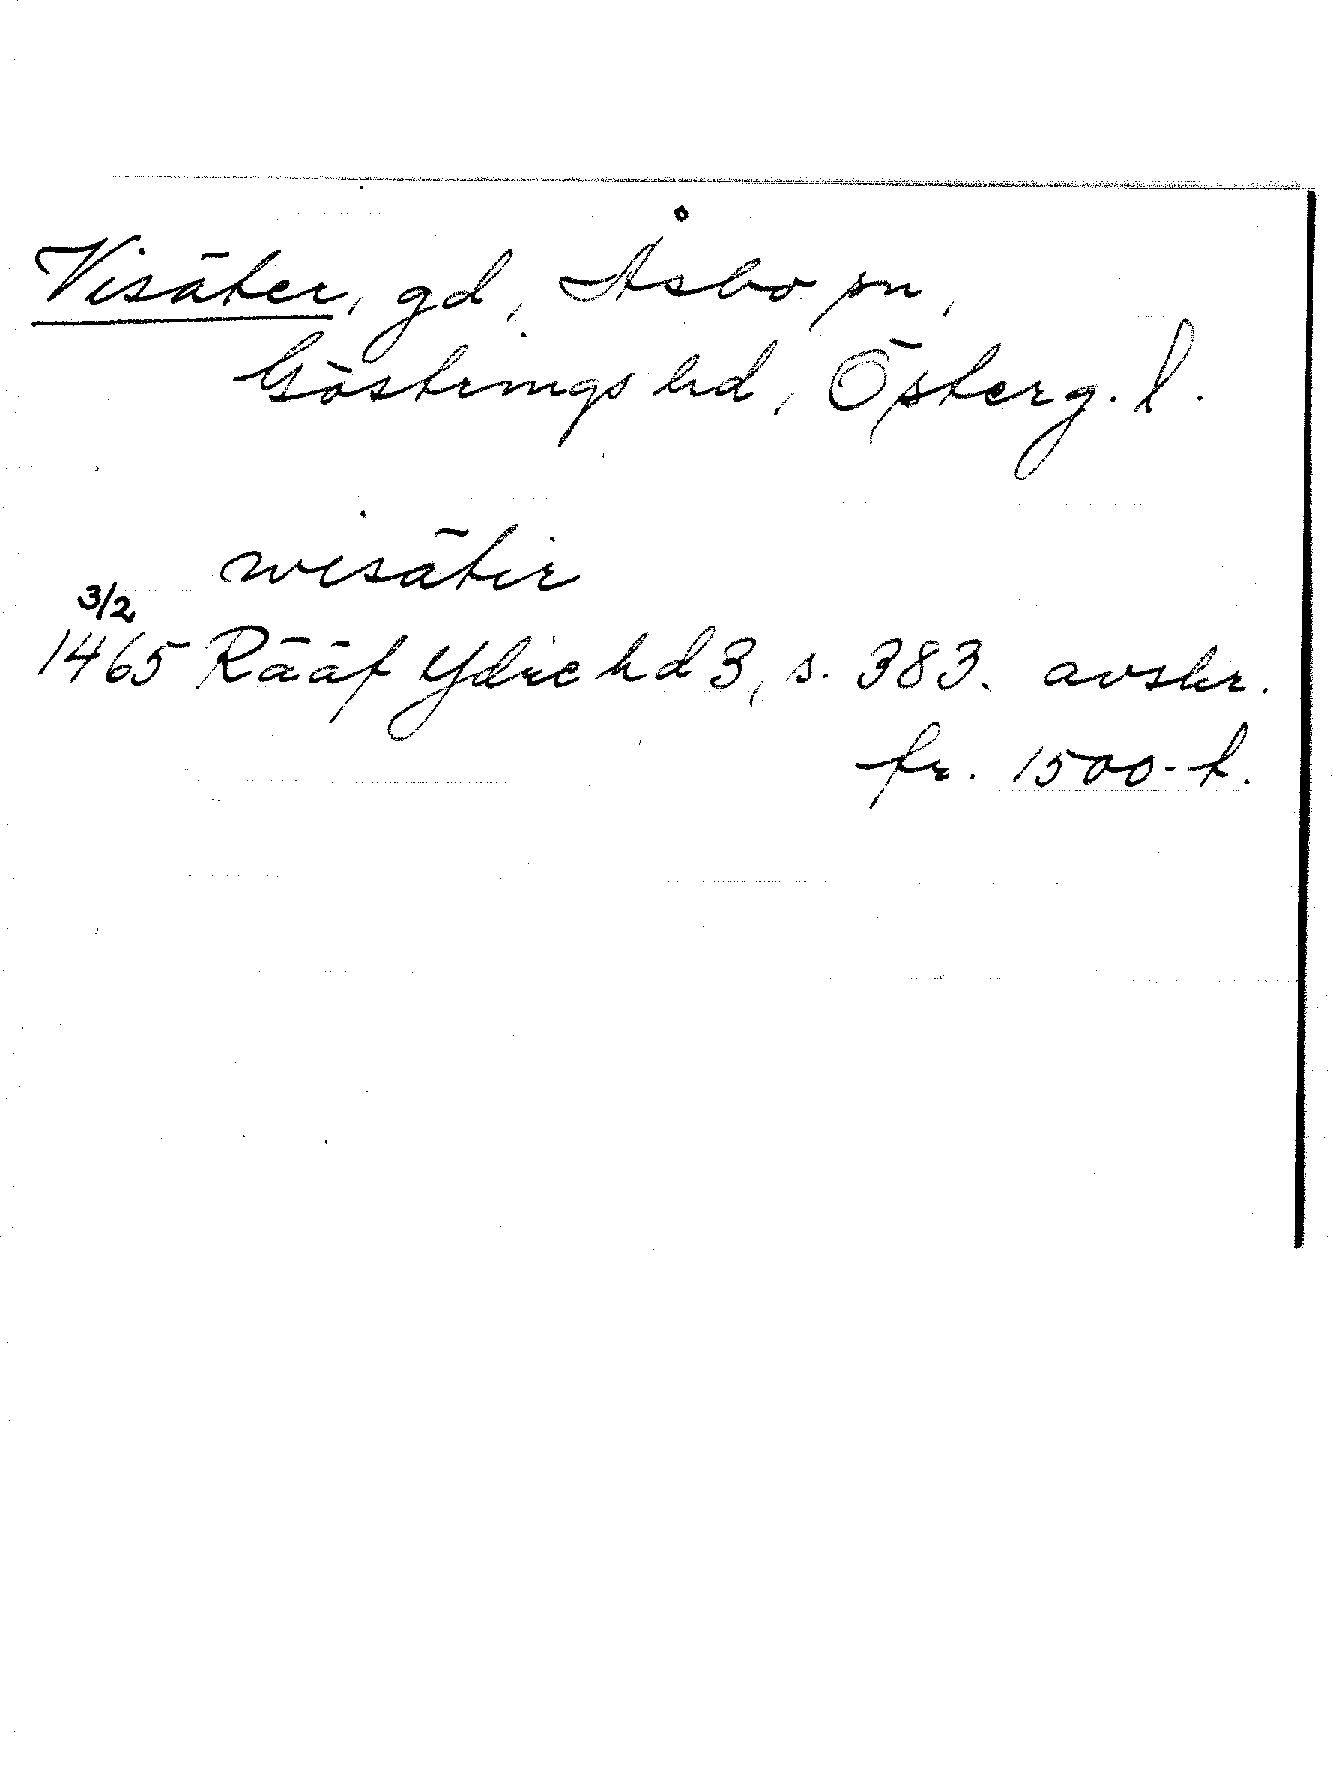 Visäter, gd, Åsbo sn,
Göstrings hd, Österg. l.
wisätir
3/2
1465 Rääf Ydre hd 3, s. 383. avskr.
fr. 1500-t.